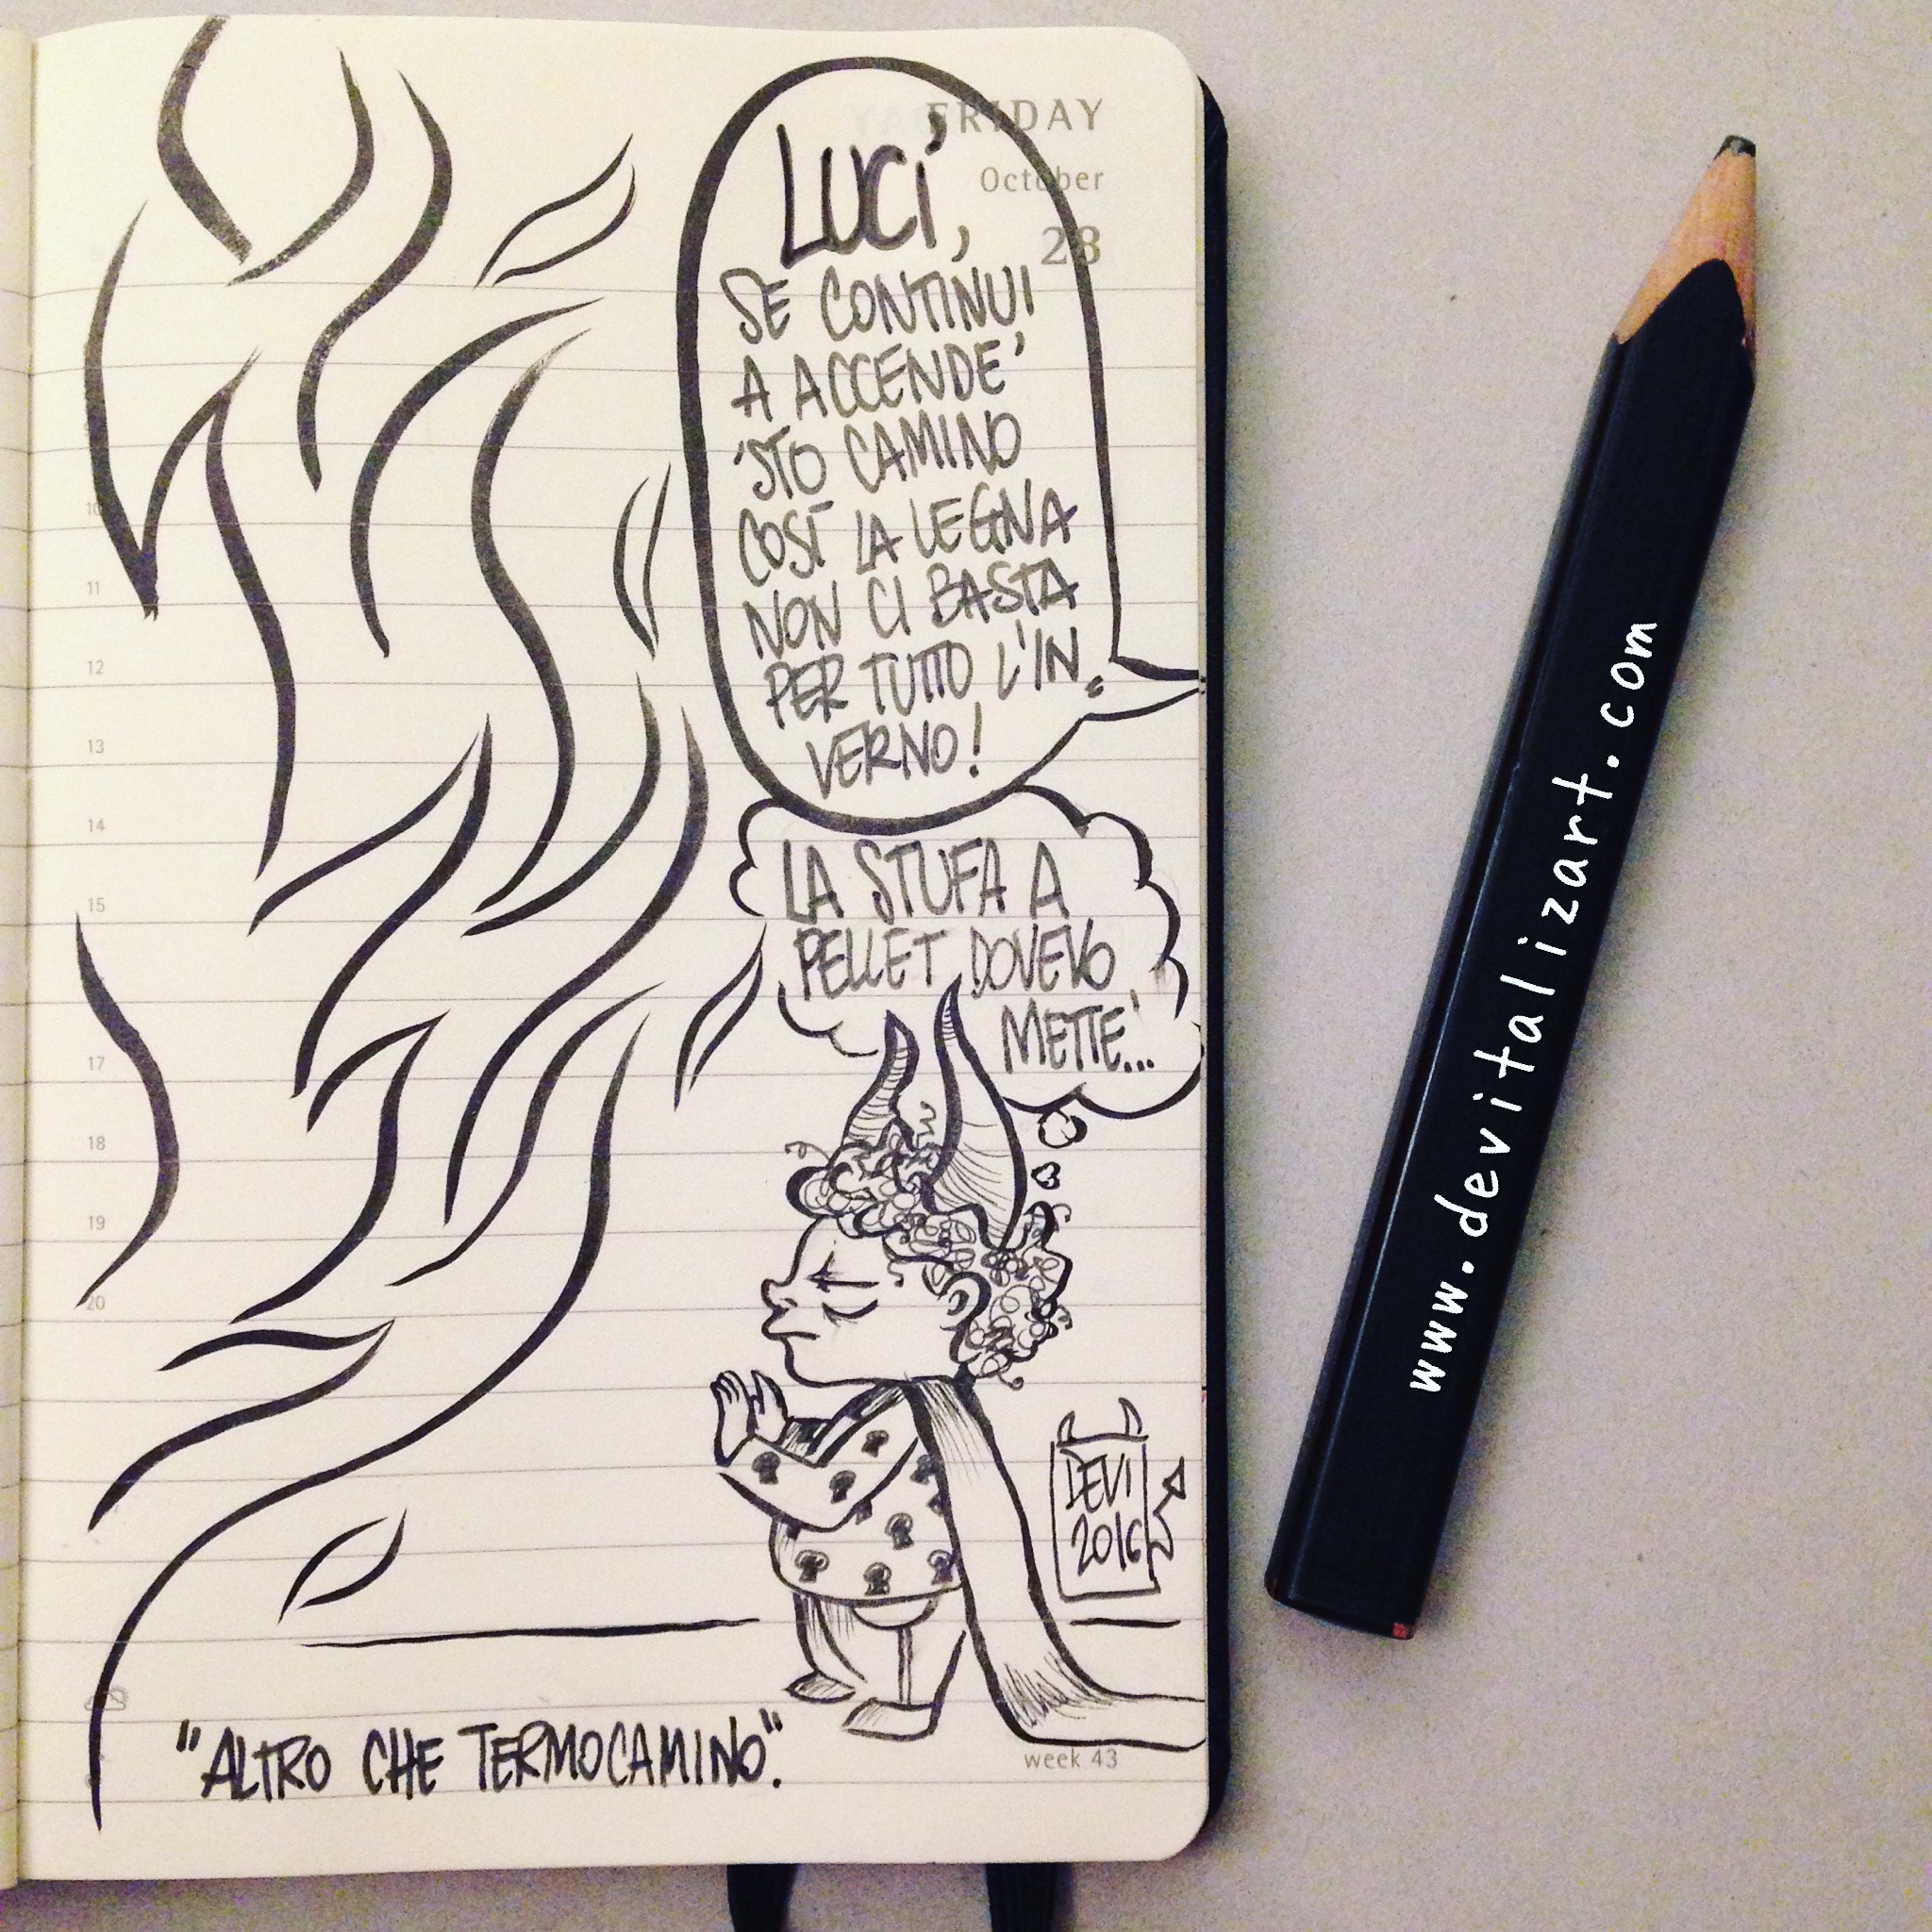 FRIDAY
October
28
LUCI',
SE CONTINUI
A ACCENDE'
'STO CAMINO
COSÌ LA LEGNA
NON CI BASTA
PER TUTTO L'IN=
VERNO!
LA STUFA A
PELLET DOVEVO
METTE'...
10
11
12
13
14
15
17
18
19
20
DEVI
2016
"ALTRO CHE TERMOCAMINO".
week 43
www.devitalizart.com